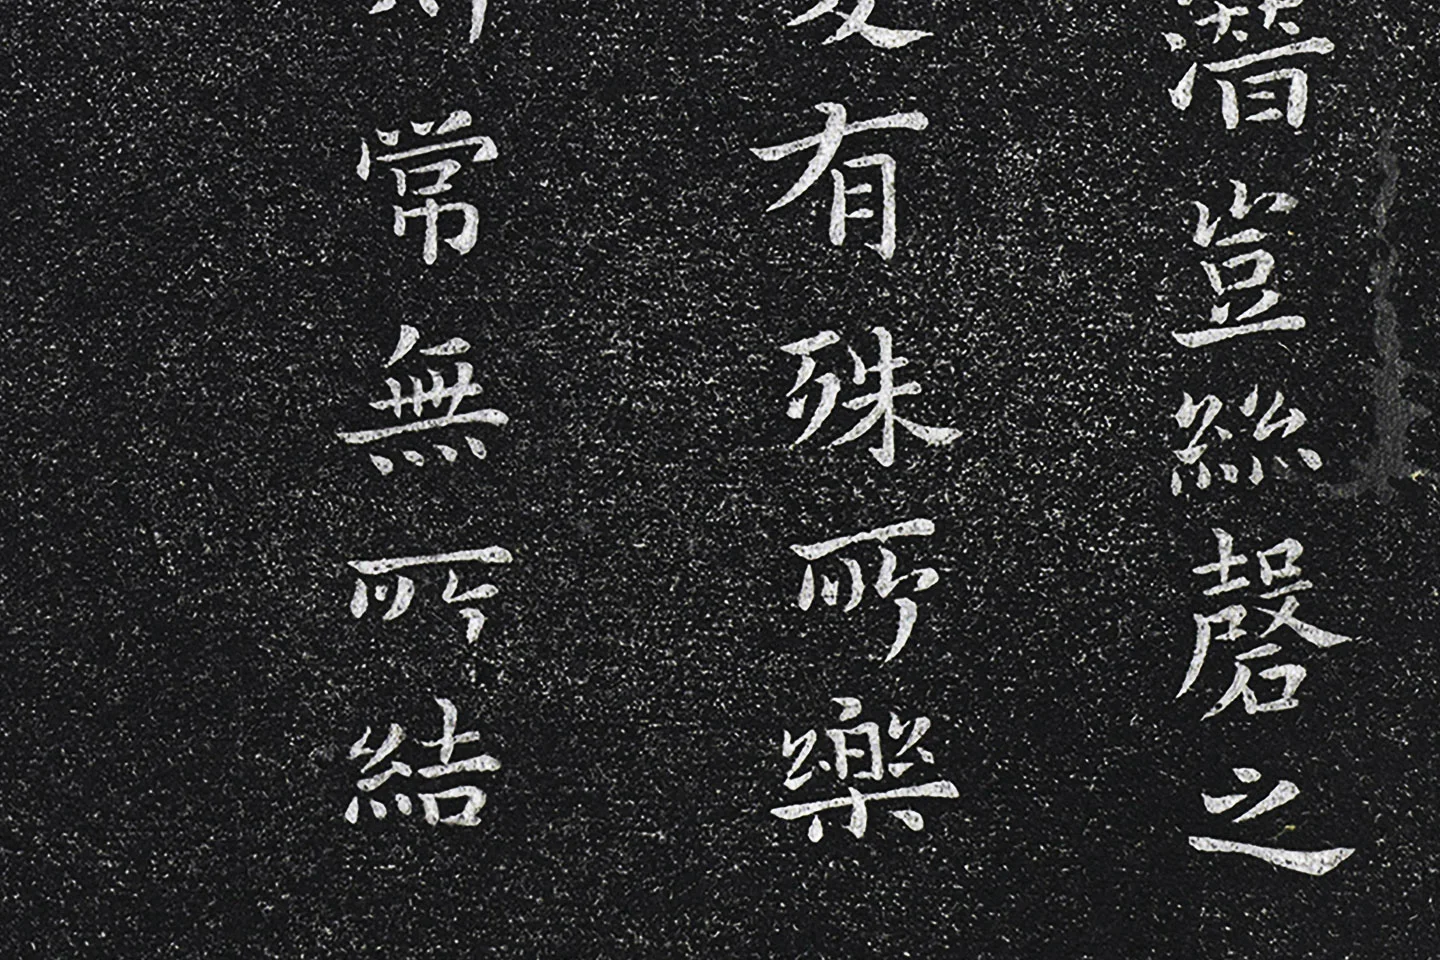 潛豈絲磬之
有殊所樂
常無所結